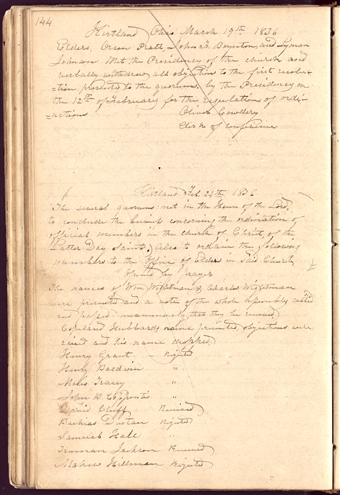 144
Kirtland Ohio March 19th 1836
Elders, Orson Pratt, John F. Boynton, and Lyman
Johnson met the Presidency of the church and
verbally withdrew all objections to the first resolu-
-tion presented to the quorums by the Presidency on
the 12th of February for the regulation of ordi-
nations
Oliver Cowdery
Clerk of Conference
Kirtland Feb 24th 1836
The several quorums met in the House of the Lord,
to conclude the business concerning the ordination of
official members in the church of Christ, of the
Latter Day Saints, also to ordain the following
numbers to the Office of Elder in said Church
Opened by prayer
The names of Wm Wightman & Charles Wightman
were presented and a vote of the whole assembly called
and passed unanimously that they be
Copeland Hubbards name presented objections were
and his name
Henry Grant
Henry Baldwin "
Miles Tracey "
John D. "
David Cluff Received
Hezekiah Rejected
Samuel Hale "
Truman Jackson Received
Mahew Hillman Rejected